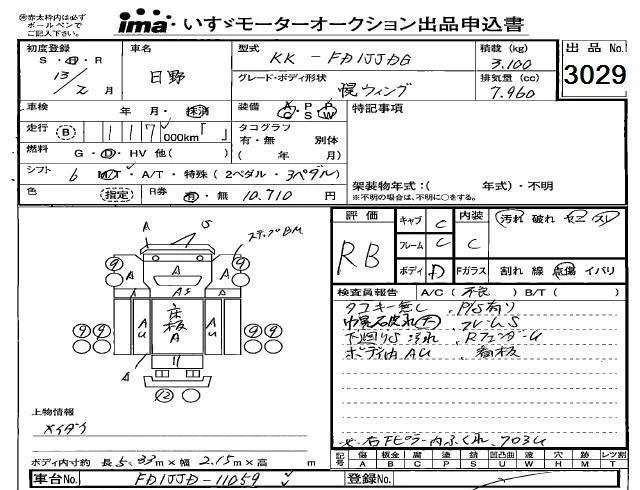 ※赤太枠内は必ず
ボールペンで
ご記入下さい。
ima いすゞモーターオークション出品申込書
初度登録 S・H・R 13/2月
車名 日野
型式 KK - FD1JJDG
積載 (kg) 3.100
出品No. 3029
グレード・ボディ形状 幌ウィング
排気量 (cc) 7.960
車検 年 月・抹消
装備 A・P・P C S W
特記事項
走行 B 117,000km「 」
タコグラフ 有・無 別体 ( 年 月)
燃料 G・D・HV 他( )
シフト 6 M/T・A/T・特殊(2ペダル・3ペダル)
架装物年式:( 年式)・不明
※不明の場合は、不明に○をする。
色 (指定) R券 有・無 10.710 円
評価 RB
キャブ C
内装 C
汚れ 破れ コゲ スレ
フレーム C
ボディ D
Fガラス 割れ 線 点傷 イバリ
ステップBM
S
A
9 9
A A
A A
AS
A AU 床板A AU A
9 9
A
12
検査員報告 A/C( 不良 )B/T( )
タコキー無し、P/S有り
中、フレームS
下廻りS 汚れ、RフェンダーU
ボディ内AU
上物情報
ボディ内寸約 長5.33m×幅2.15m×高 m
記号 傷A 板金B 腐C 塗P 錆S 凹凸曲U 波W 穴H 欠M 要T レツ割
車台No. FD1JJD-11059
登録No.